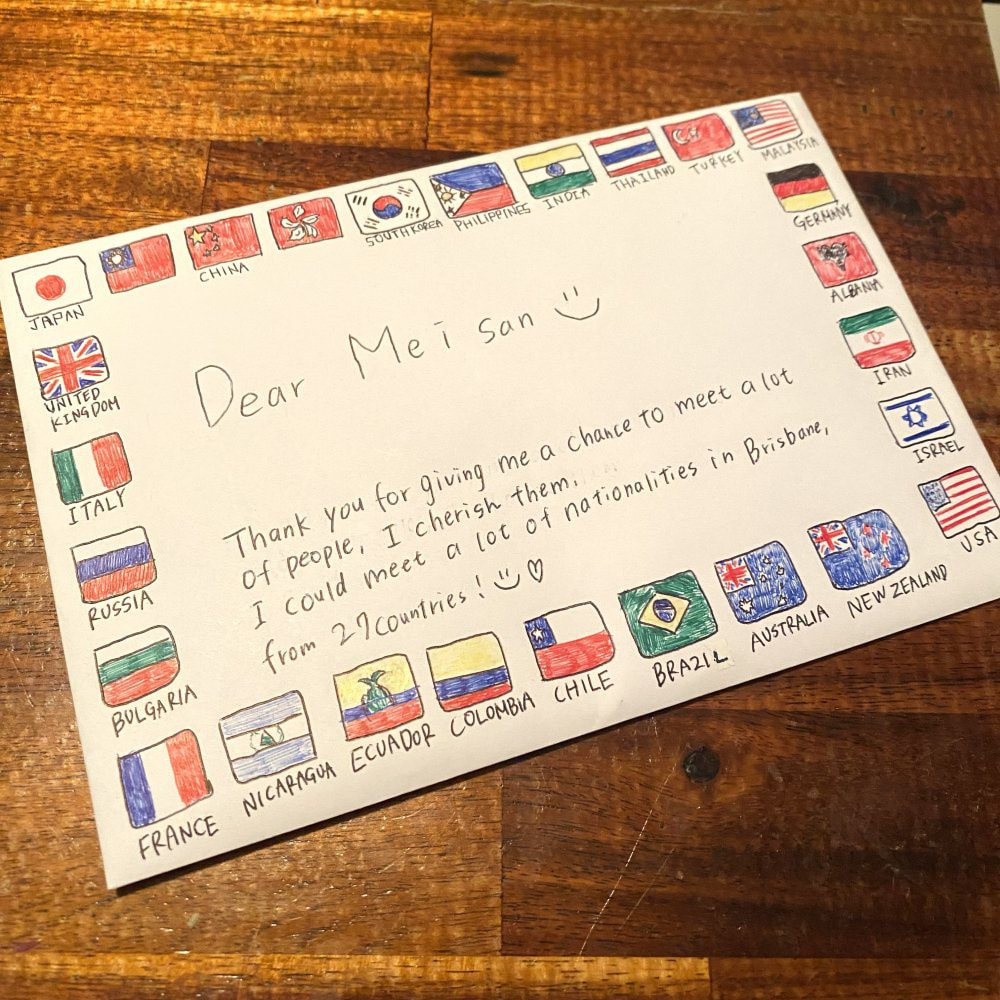 JAPAN
CHINA
SOUTH KOREA
PHILIPPINES
INDIA
THAILAND
TURKEY
MALAYSIA
GERMANY
ALBANIA
IRAN
ISRAEL
USA
UNITED
KINGDOM
ITALY
RUSSIA
BULGARIA
FRANCE
Dear Mei san
Thank you for giving me a chance to meet a lot
of people, I cherish them.
I could meet a lot of nationalities in Brisbane,
from 27countries!
NICARAGUA
ECUADOR
COLOMBIA
CHILE
BRAZIL
AUSTRALIA
NEW ZEALAND